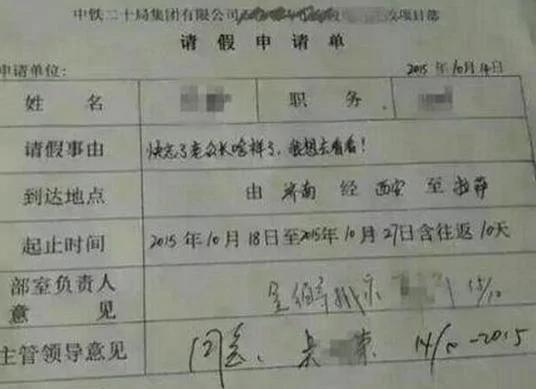 中铁二十局集团有限公司 项目部
请假申请单
申请单位： 2015年10月14日
姓名 职务
请假事由 快忘了老公长啥样了，我想去看看！
到达地点 由 济南 经 西安 至 拉萨
起止时间 2015年10月18日至2015年10月27日含往返10天
部室负责人
意见
主管领导意见 同意 14/10-2015